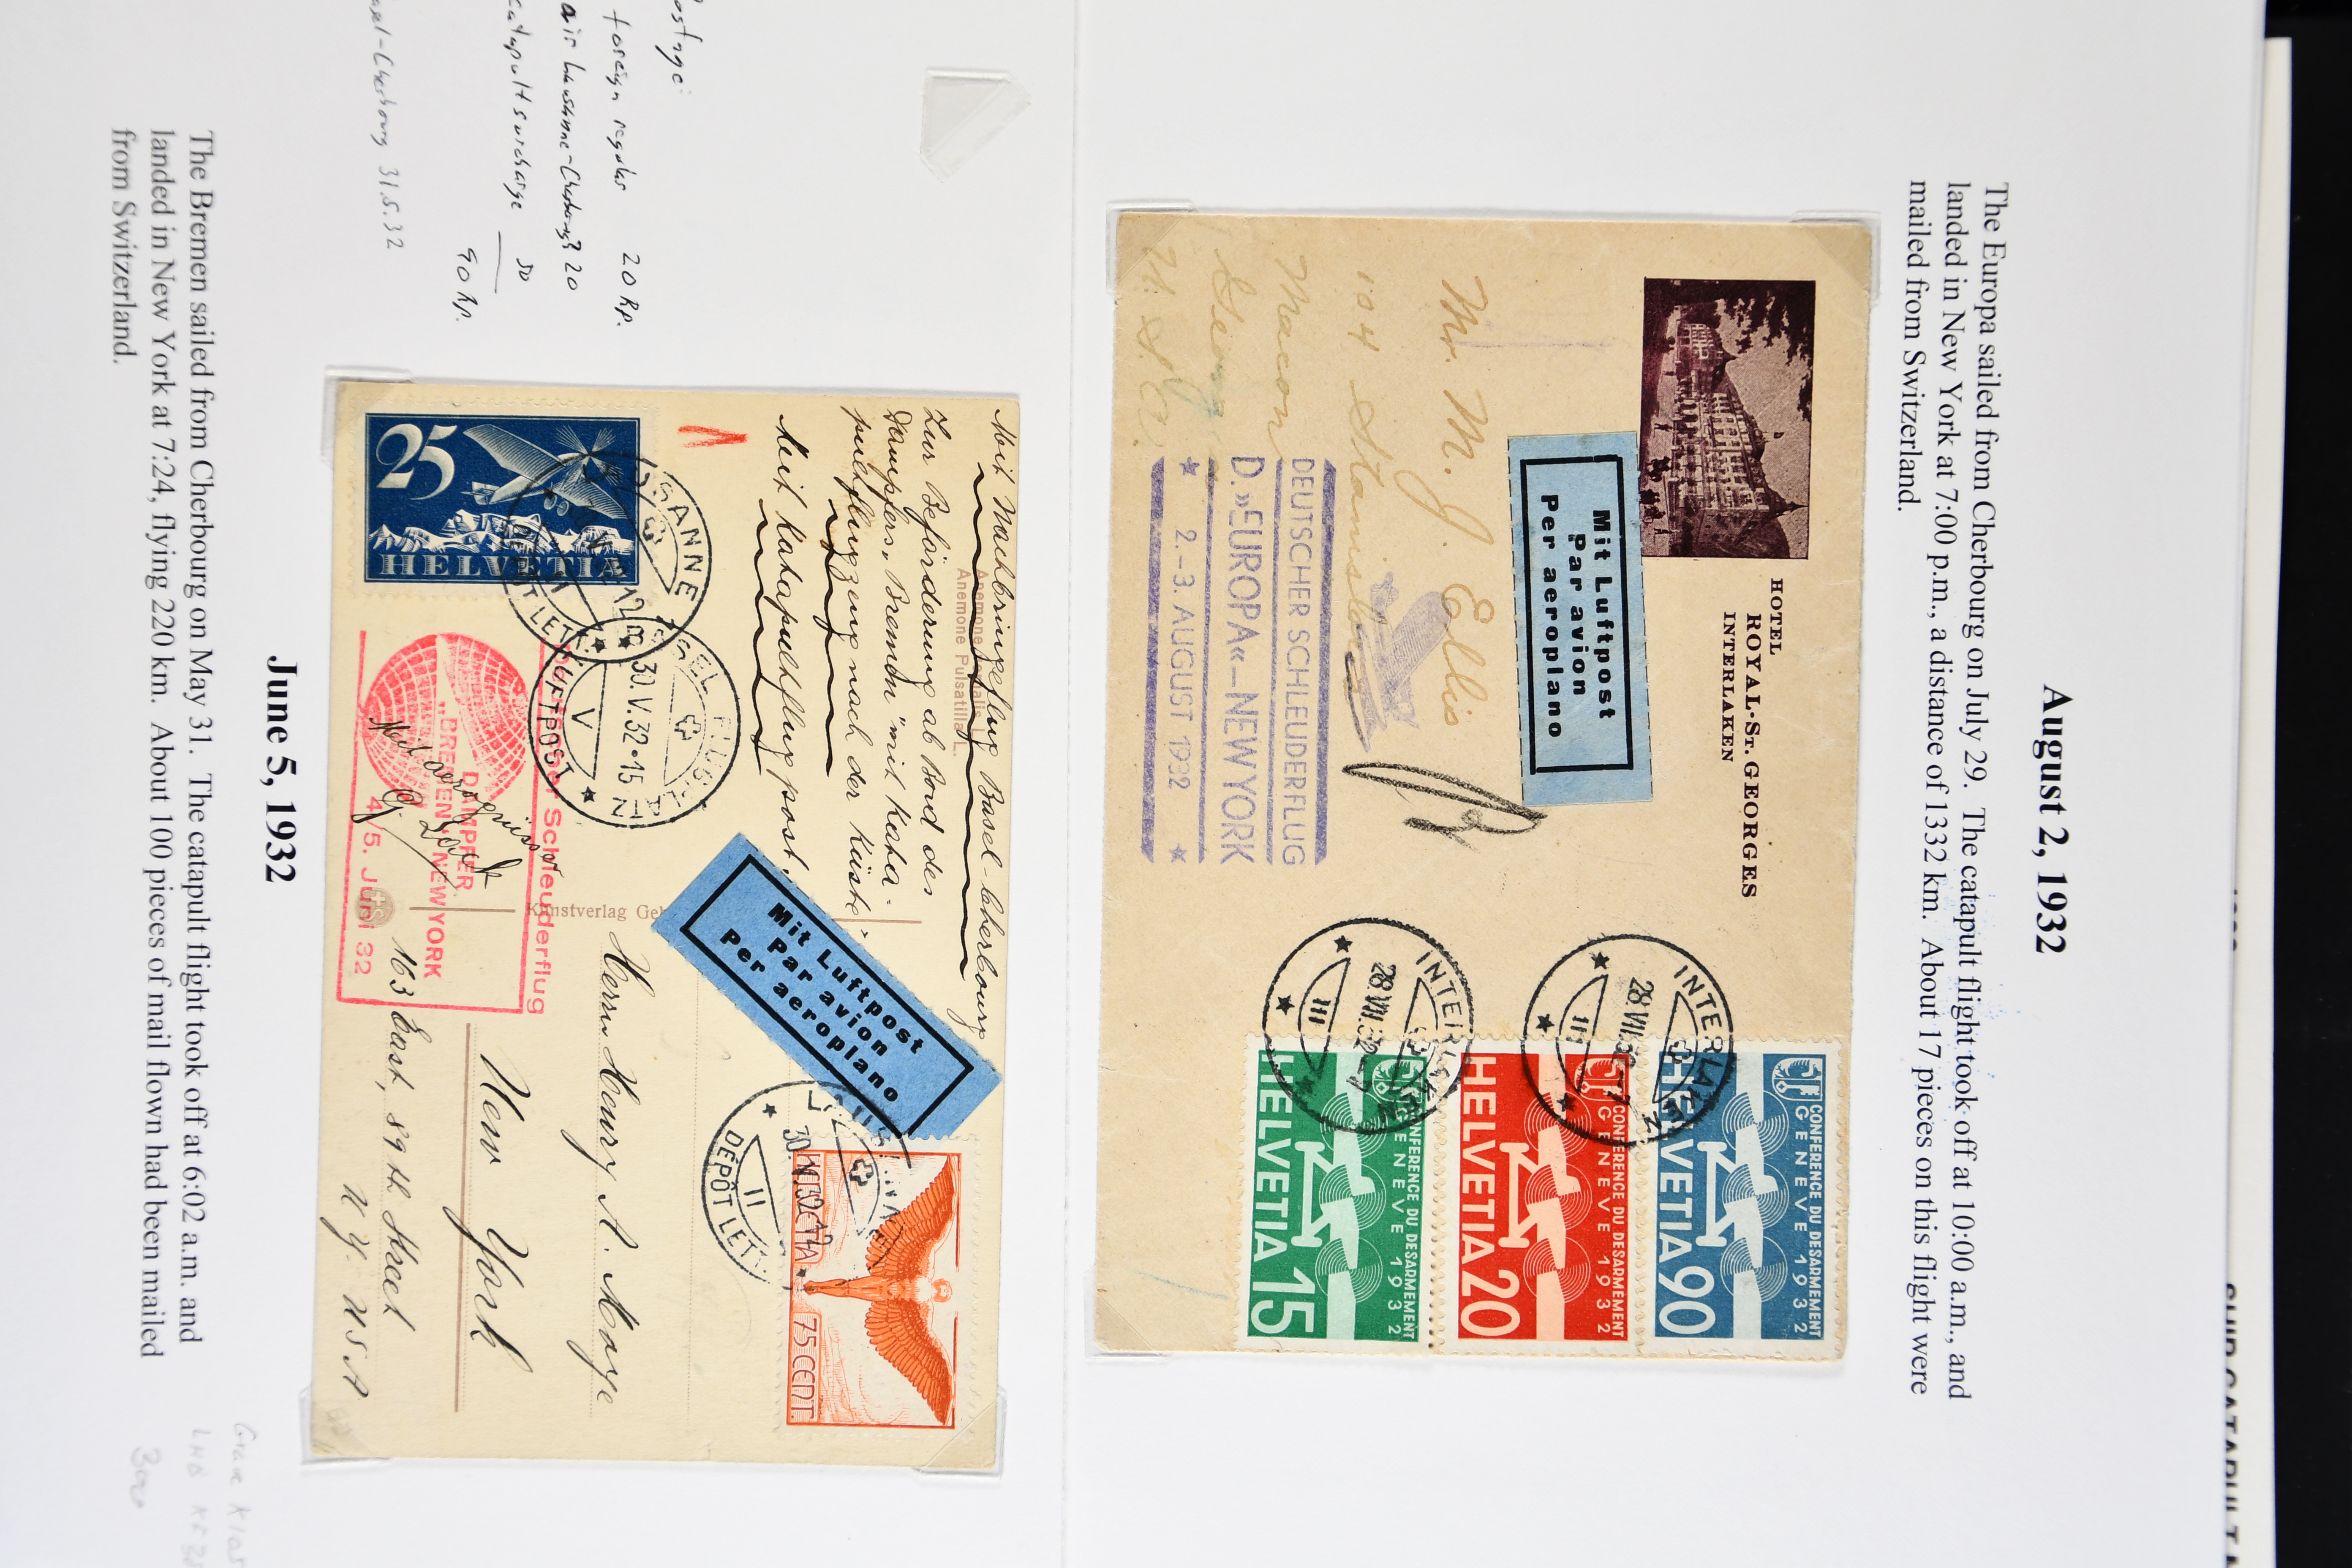 August 2, 1932
The Europa sailed from Cherbourg on July 29. The catapult flight took off at 10:00 a.m., and
landed in New York at 7:00 p.m., a distance of 1332 km. About 17 pieces on this flight were
mailed from Switzerland.
HOTEL
ROYAL-ST. GEORGES
INTERLAKEN
Mit Luftpost
Par avion
Per aeroplano
Mr. M. J. Ellis
104 Stanislaus
Macon
Georgia
U.S.A.
DEUTSCHER SCHLEUDERFLUG
D. »EUROPA« – NEW YORK
★ 2.–3. AUGUST 1932 ★
INTERLAKEN
28.VII.32
III
INTERLAKEN
28.VII.32
III
CONFERENCE DU DESARMEMENT
GENEVE 1932
HELVETIA 90
CONFERENCE DU DESARMEMENT
GENEVE 1932
HELVETIA 20
CONFERENCE DU DESARMEMENT
GENEVE 1932
HELVETIA 15
foreign regular 20 Rp.
catapult surcharge 50
90 Rp.
Cherbourg 31.5.32
Mit Nachbringeflug Basel-Cherbourg
Zur Beförderung ab Bord des
Dampfers „Bremen" mit Kata-
pultflugzeug nach der Küste.
Mit Katapultflugpost.
Anemone Pulsatilla L.
Kunstverlag
Mit Luftpost
Par avion
Per aeroplano
25
HELVETIA
BASEL FLUGPLATZ
30.V.32-15
V
LUFTPOST
30.V.32
II
DÉPÔT LET
75 CENT.
Herrn Henry A. Maye
New York
163 East, 89th Street
N.Y. U.S.A
Deutscher Schleuderflug
DAMPFER
"BREMEN"-NEW YORK
4/5. Juni 32
June 5, 1932
The Bremen sailed from Cherbourg on May 31. The catapult flight took off at 6:02 a.m. and
landed in New York at 7:24, flying 220 km. About 100 pieces of mail flown had been mailed
from Switzerland.